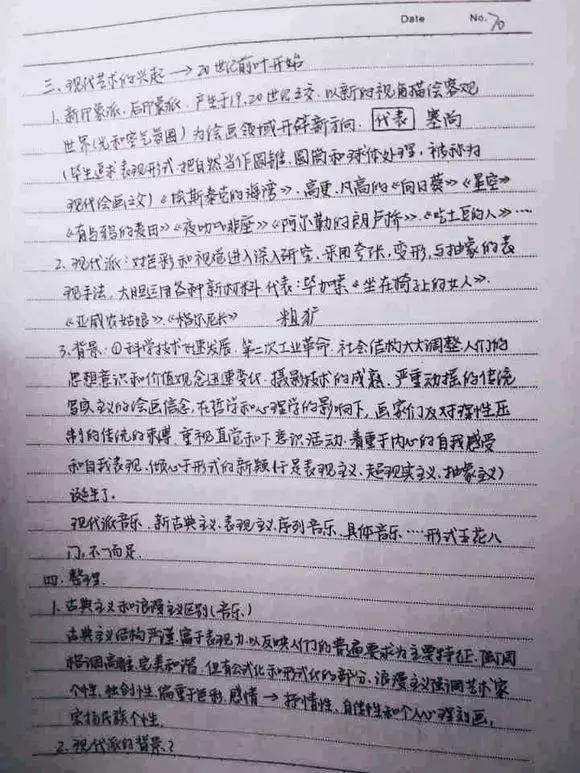 Date No. 70
三、现代艺术的兴起 → 20世纪前叶开始
1. 新印象派、后印象派，产生于19、20世纪之交，以新的视角描绘客观
世界(光和空气氛围)为绘画领域开辟新方向. 代表 塞尚
(毕生追求表现形式，把自然当作圆锥、圆筒和球体处理，被称为
现代绘画之父)《埃斯泰克的海湾》. 高更. 凡高的《向日葵》《星空》
《有乌鸦的麦田》《夜咖啡座》《阿尔勒的朗卢桥》.《吃土豆的人》……
2. 现代派：对色彩和视觉进入深入研究，采用夸张，变形，与抽象的表
现手法，大胆运用各种新材料 代表：毕加索《坐在椅子上的女人》.
《亚威农姑娘》.《格尔尼卡》 粗犷
3. 背景：①科学技术飞速发展，第二次工业革命，社会结构大大调整，人们的
思想意识和价值观念迅速变化，摄影技术的成熟，严重动摇的传统
写实主义的绘画信念，在哲学和心理学的影响下，画家们反对理性压
制的传统的束缚，重视直觉和下意识活动，着重于内心的自我感受
和自我表现，倾心于形式的新颖(于是表现主义、超现实主义、抽象主义)
诞生了.
现代派音乐，新古典主义、表现主义、序列音乐、具体音乐……形式五花八
门，不一而足.
四. 整理.
1. 古典主义和浪漫主义区别(音乐)
古典主义结构严谨，富于表现力，以反映人们的普遍要求为主要特征，强调
格调高雅、完美和谐，但有公式化和形式化的部分，浪漫主义强调艺术家
个性、独创性，偏重于色彩、感情 → 抒情性、自传性和个人心理刻画，
宏扬民族个性.
2. 现代派的背景？